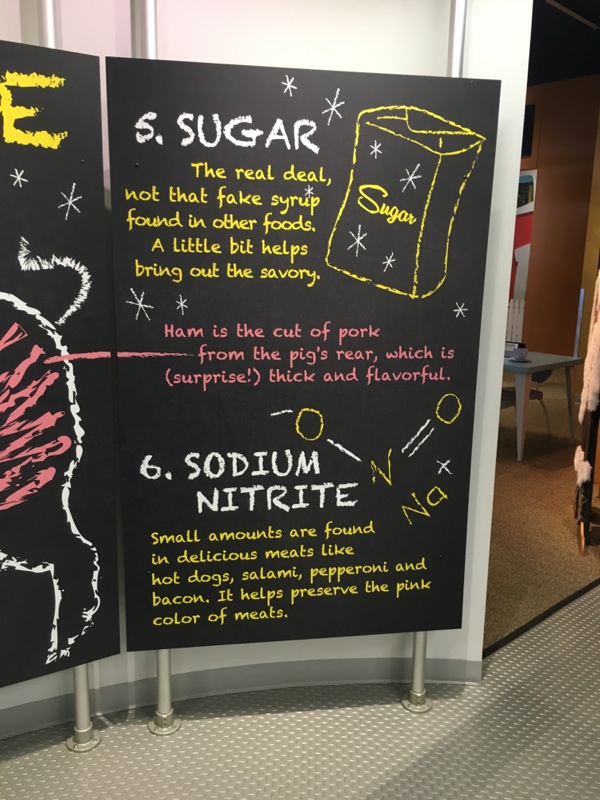 E
5. SUGAR
The real deal,
not that fake syrup
found in other foods.
A little bit helps
bring out the savory.
Sugar
Ham is the cut of pork
from the pig's rear, which is
(surprise!) thick and flavorful.
O
O
N
Na
6. SODIUM
NITRITE
Small amounts are found
in delicious meats like
hot dogs, salami, pepperoni and
bacon. It helps preserve the pink
color of meats.